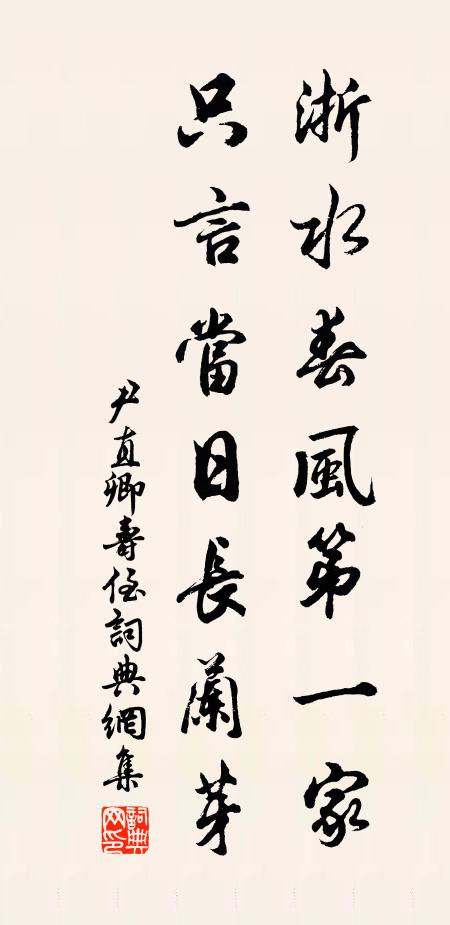 浙水春風第一家
只言當日長蘭芽
尹直卿壽侄詞典網集
詞典網印